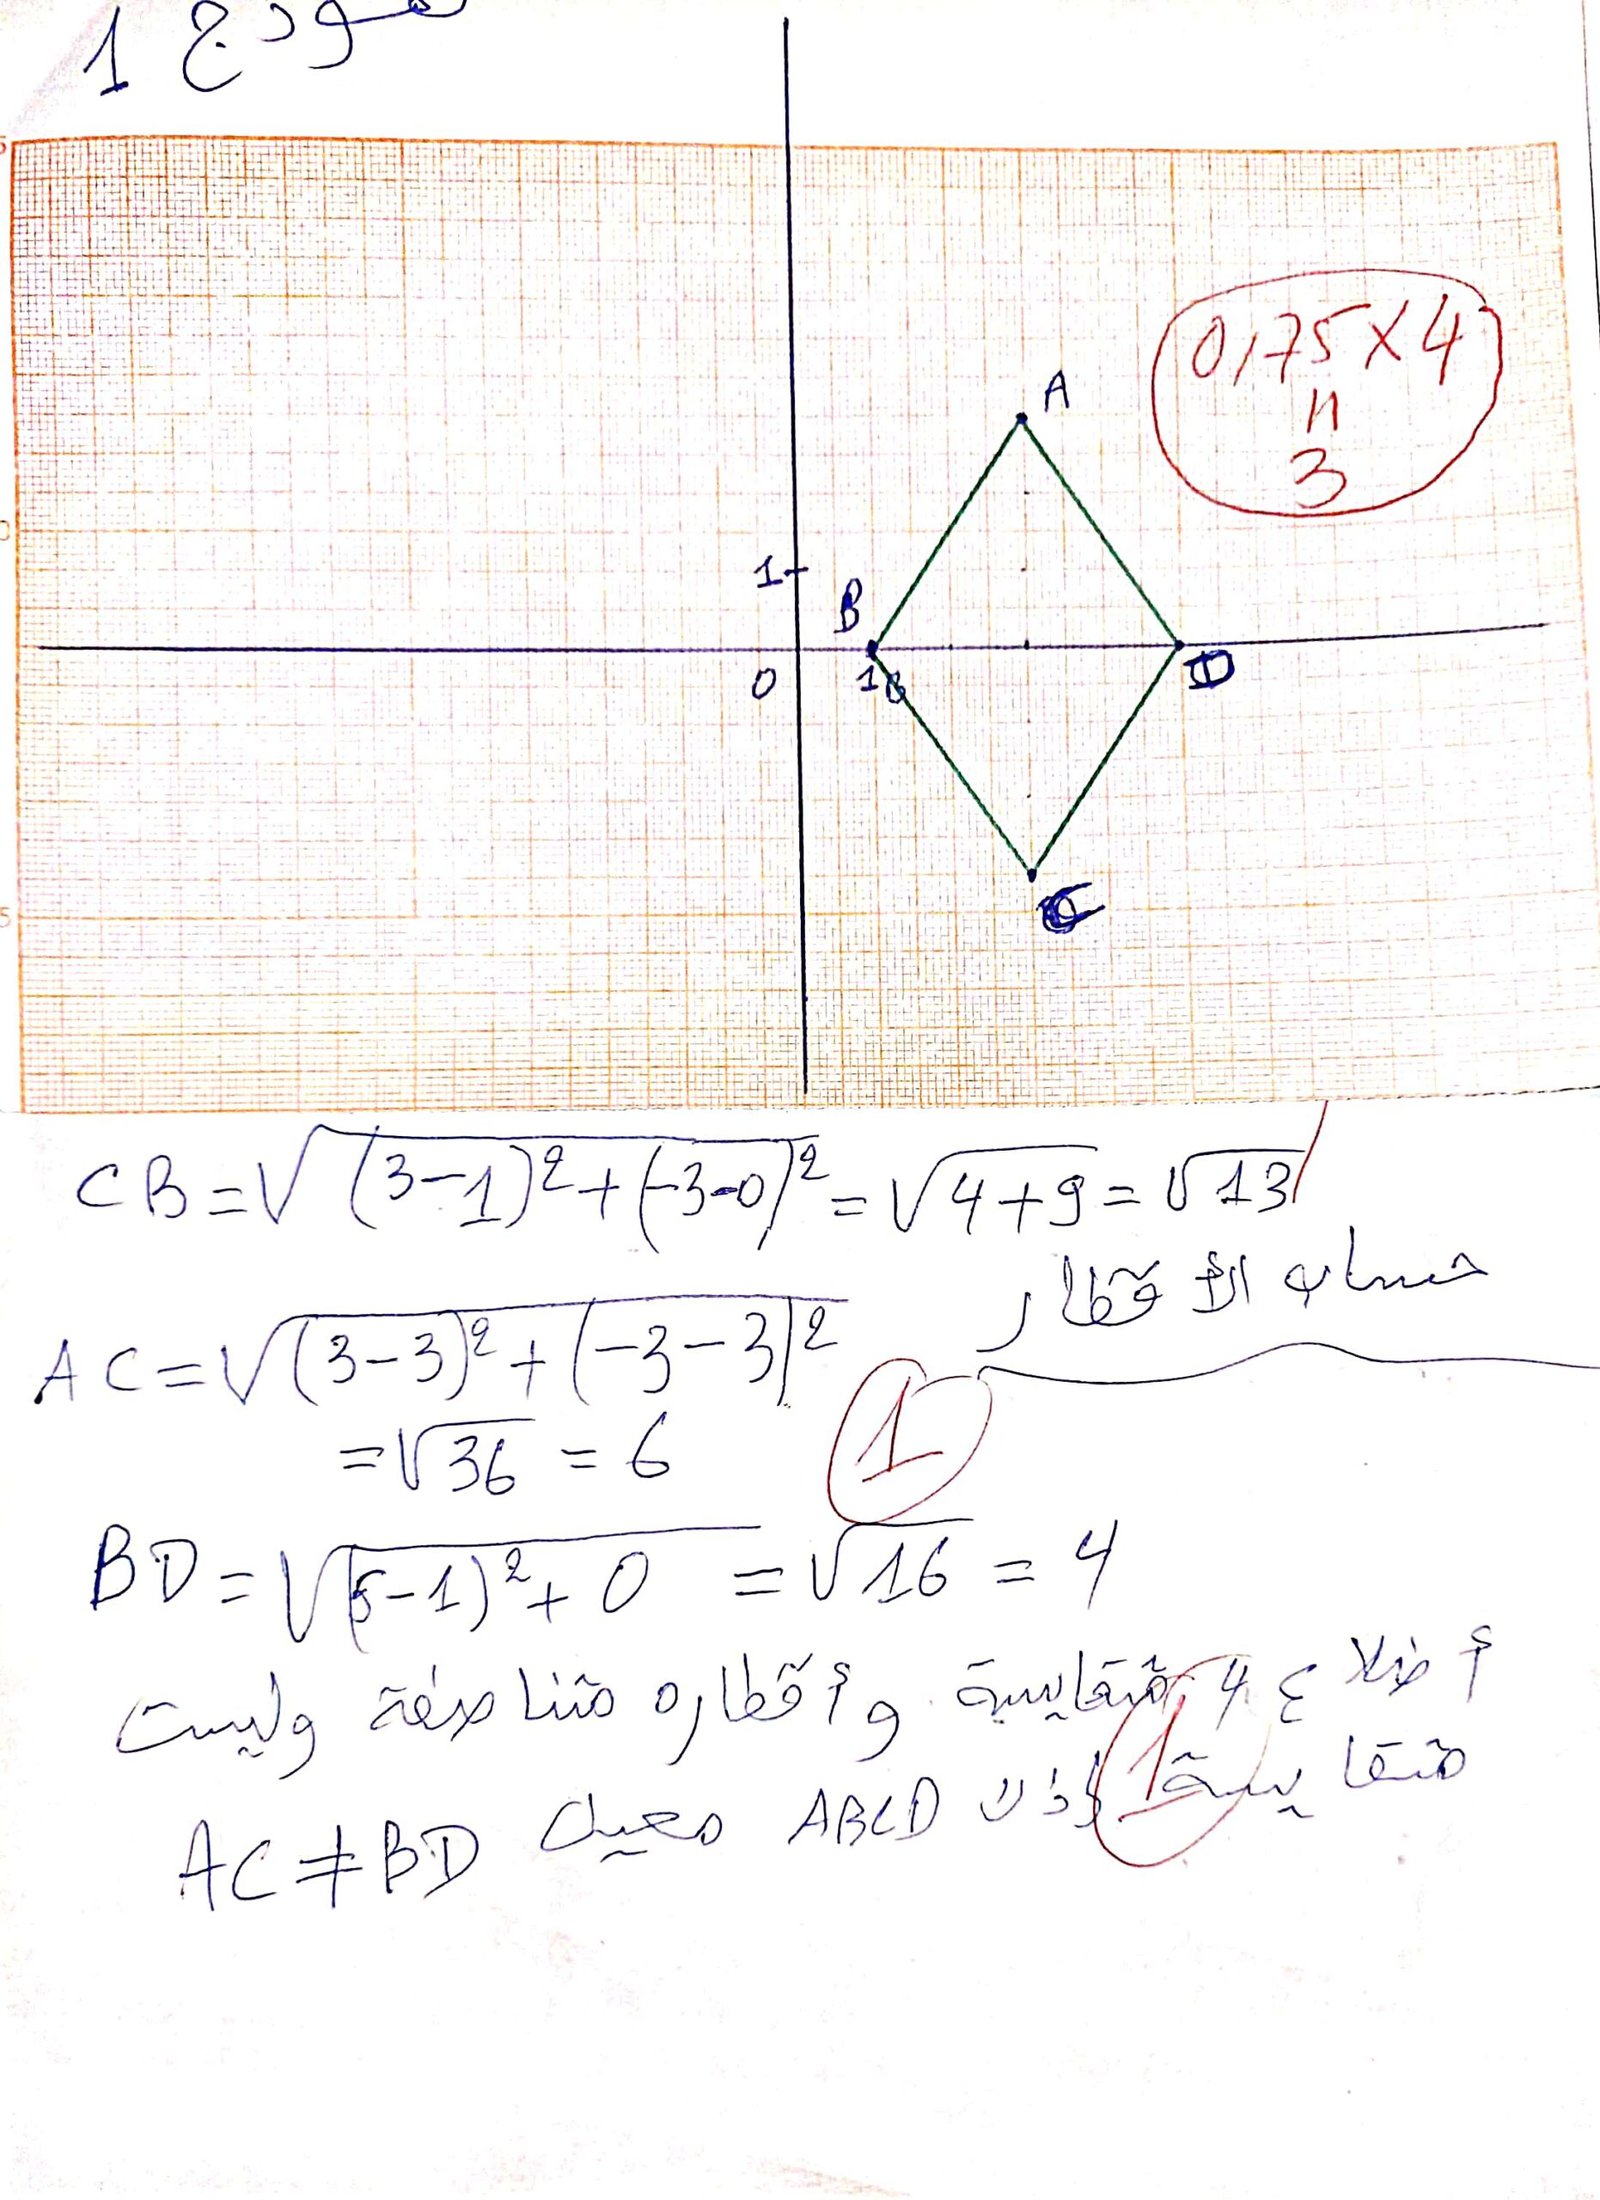 نموذج 1
A
0,75 × 4
=
3
1
B
0
1 B
D
C
CB = √(3-1)² + (-3-0)² = √4+9 = √13
حساب الأقطار
AC = √(3-3)² + (-3-3)²
= √36 = 6
1
BD = √(5-1)² + 0 = √16 = 4
أضلاع 4 متقايسة وأقطاره متناصفة وليست
متقايسة إذن ABCD معين
1
AC ≠ BD